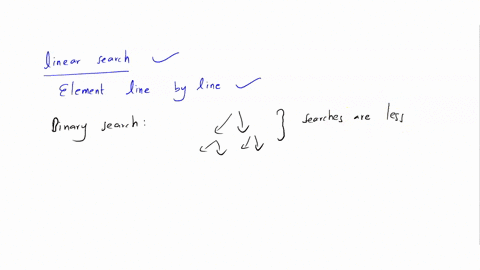 linear search
Element line by line
Binary search:
searches are less